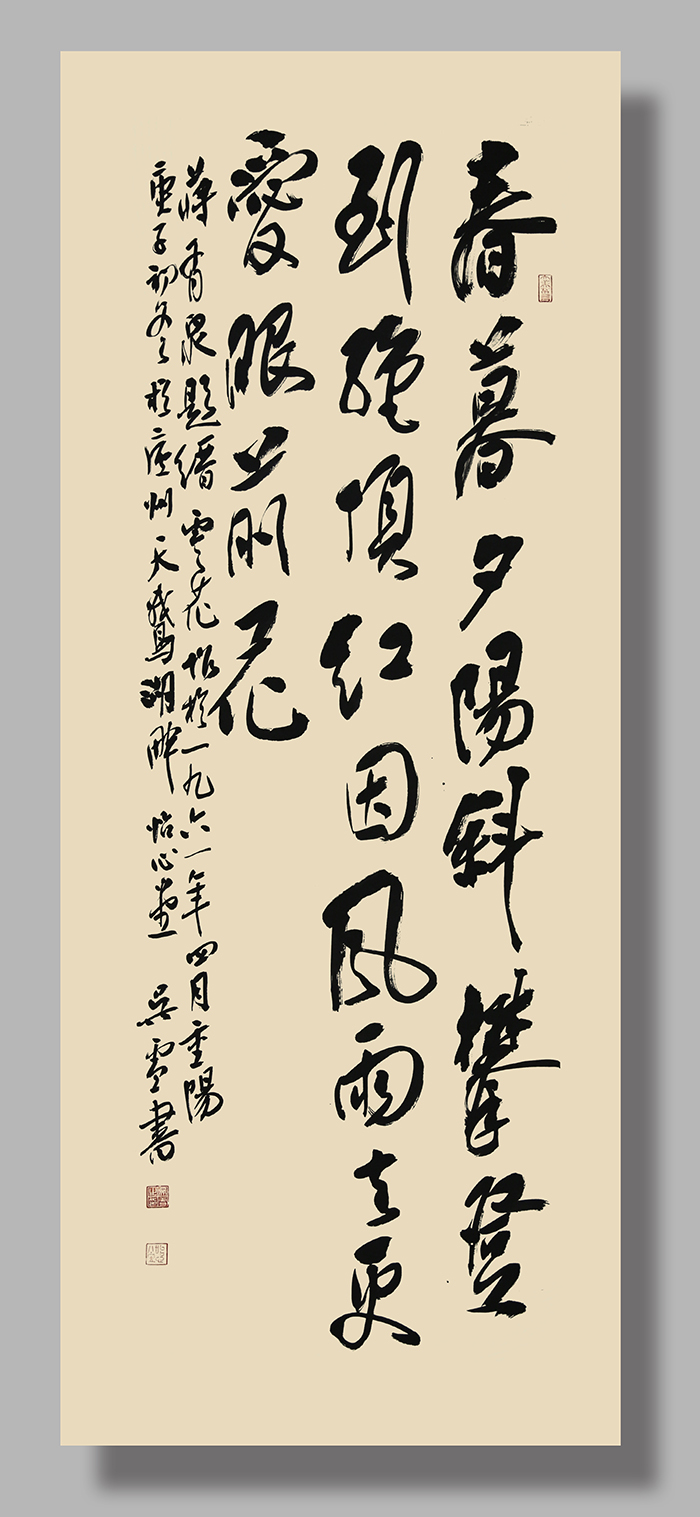 春暮夕陽斜攀登
到絕頂紅因風雨去更
愛眼前花
蔣胥泉題縉雲花作於一九六一年四月重陽
庚子初冬於廬州天鵝湖畔怡心 吳雪書